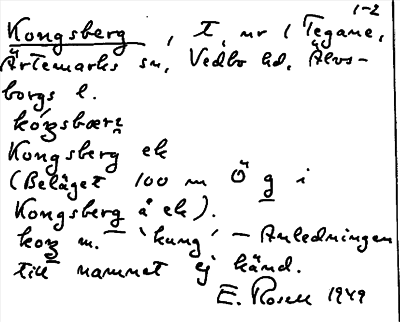 1-2
Kongsberg, t, nr 1 Tegane,
Ärtemarks sn, Vedbo hd, Älvs-
borgs l.
Kongsberg ek
(Beläget 100 m Ö g i
Kongsberg å ek).
m. 'kung' – Anledningen
till namnet ej känd.
E. Rosell 1949